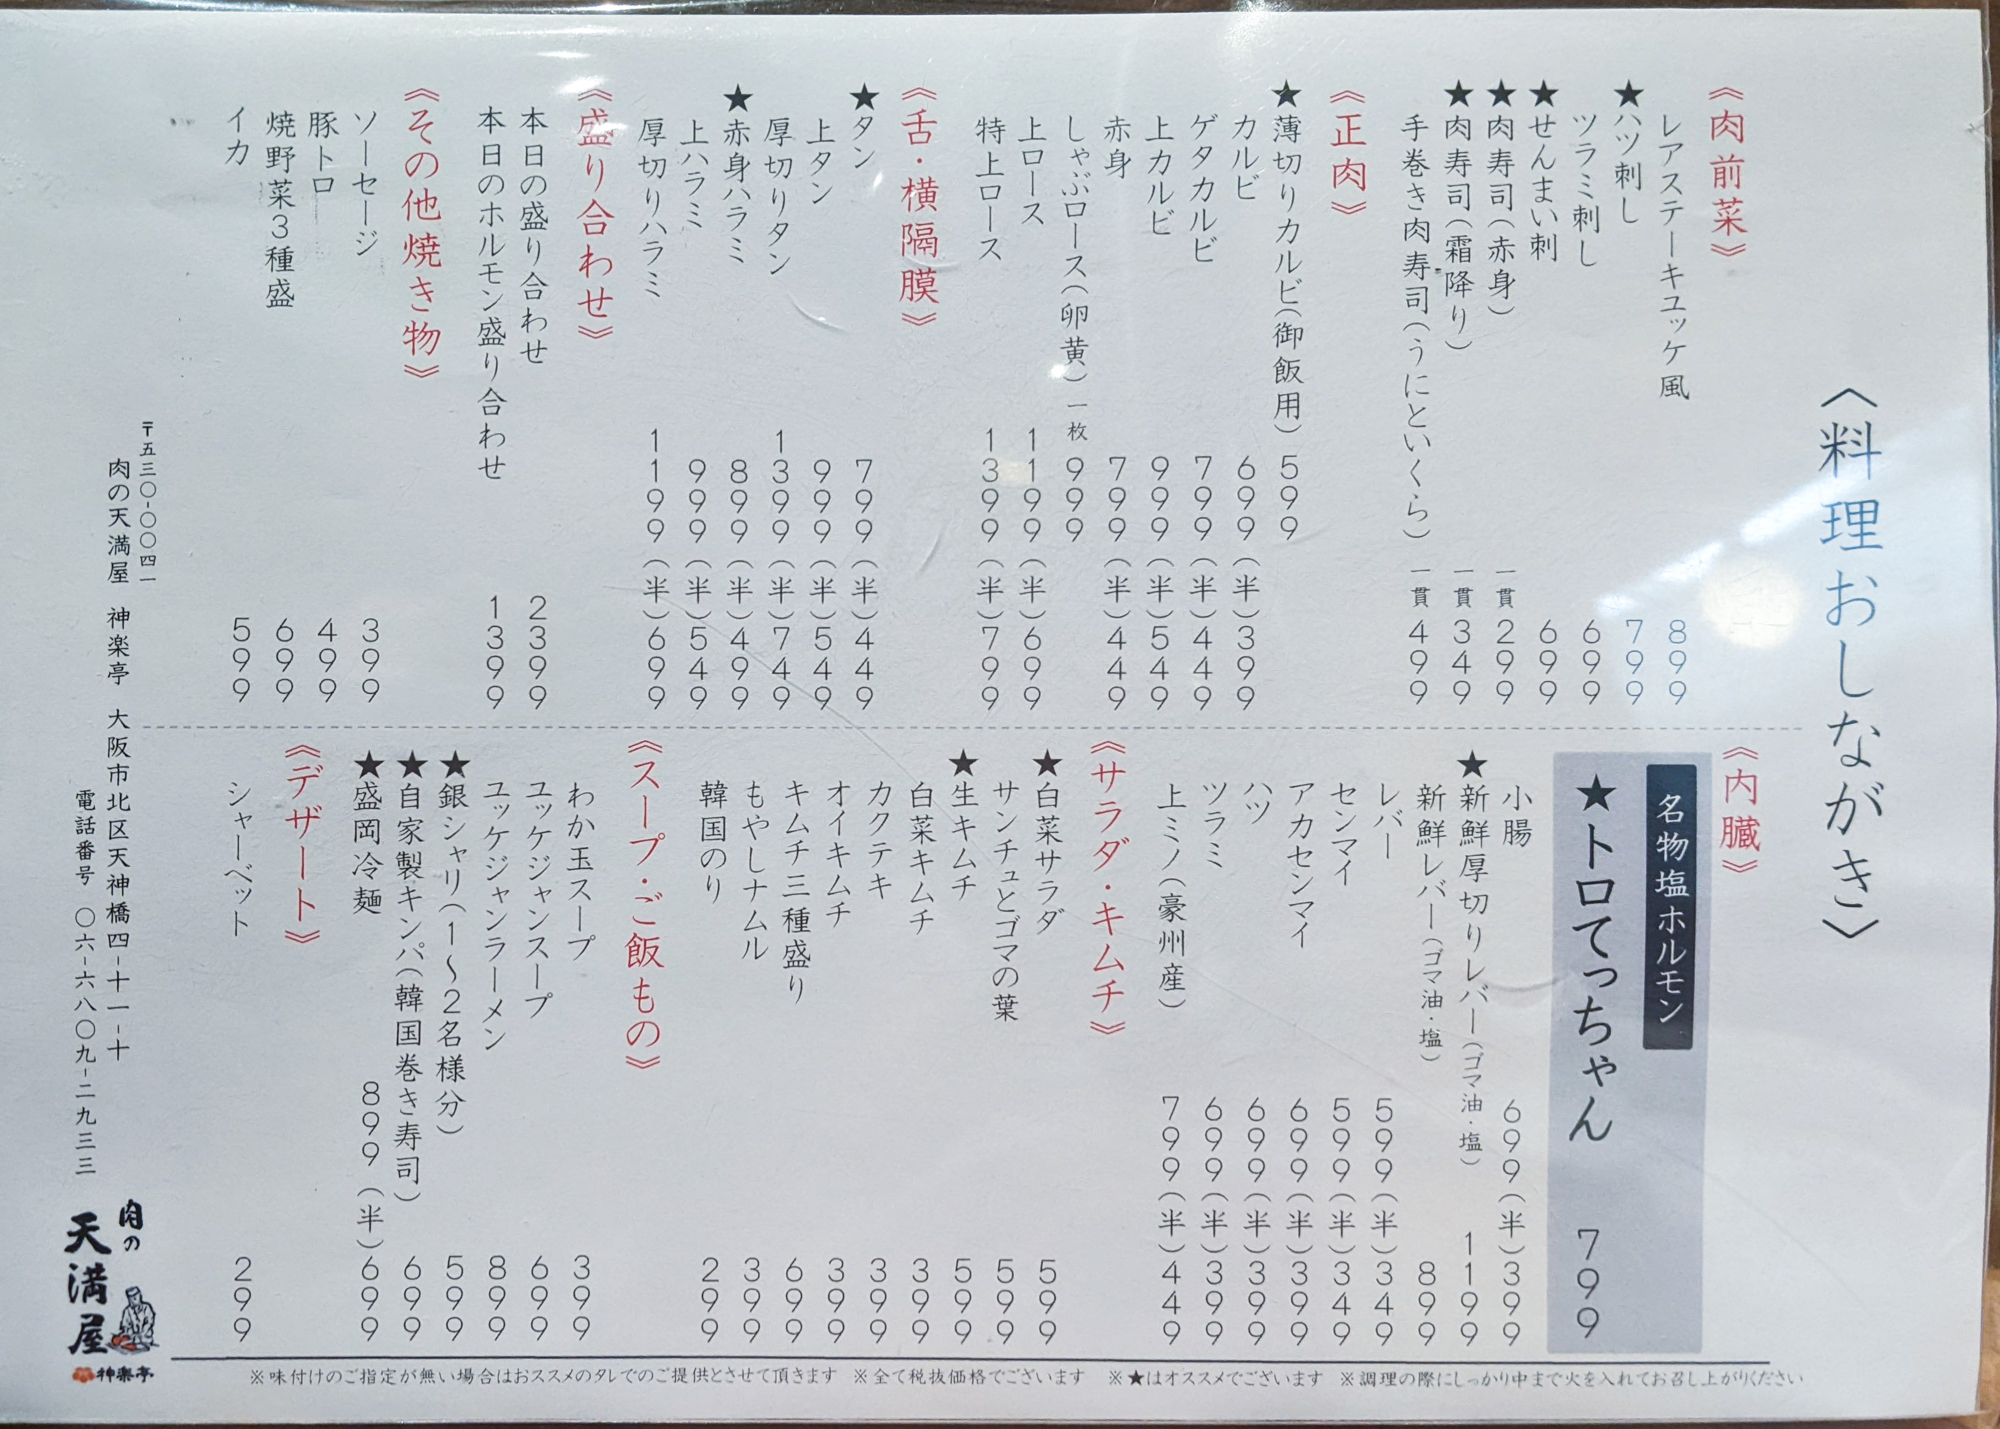 〈料理おしながき〉
《肉前菜》
レアステーキユッケ風 899
★ハツ刺し 799
ツラミ刺し 699
★せんまい刺 699
★肉寿司(赤身) 一貫 299
★肉寿司(霜降り) 一貫 349
手巻き肉寿司(うにといくら) 一貫 499
《正肉》
★薄切りカルビ(御飯用) 599
カルビ 699(半)399
ゲタカルビ 799(半)449
上カルビ 999(半)549
赤身 799(半)449
しゃぶロース(卵黄) 一枚 999
上ロース 1199(半)699
特上ロース 1399(半)799
《舌・横隔膜》
★タン 799(半)449
上タン 999(半)549
厚切りタン 1399(半)749
★赤身ハラミ 899(半)499
上ハラミ 999(半)549
厚切りハラミ 1199(半)699
《盛り合わせ》
本日の盛り合わせ 2399
本日のホルモン盛り合わせ 1399
《その他焼き物》
ソーセージ 399
豚トロ 499
焼野菜3種盛 699
イカ 599
《内臓》
名物塩ホルモン
★トロてっちゃん 799
小腸 699(半)399
★新鮮厚切りレバー(ゴマ油・塩) 1199
新鮮レバー(ゴマ油・塩) 899
レバー 599(半)349
センマイ 599(半)349
アカセンマイ 699(半)399
ハツ 699(半)399
ツラミ 699(半)399
上ミノ(豪州産) 799(半)449
《サラダ・キムチ》
★白菜サラダ 599
サンチュとゴマの葉 599
★生キムチ 599
白菜キムチ 399
カクテキ 399
オイキムチ 399
キムチ三種盛り 699
もやしナムル 399
韓国のり 299
《スープ・ご飯もの》
わか玉スープ 399
ユッケジャンスープ 699
ユッケジャンラーメン 899
★銀シャリ(1〜2名様分) 599
★自家製キンパ(韓国巻き寿司) 699
★盛岡冷麺 899(半)699
《デザート》
シャーベット 299
〒五三〇-〇〇四一
肉の天満屋 神楽亭 大阪市北区天神橋四-十一-十
電話番号 〇六-六八〇九-二九三三
肉の
天満屋
神楽亭
※味付けのご指定が無い場合はおススメのタレでのご提供とさせて頂きます ※全て税抜価格でございます ※★はオススメでございます ※調理の際にしっかり中まで火を入れてお召し上がりください